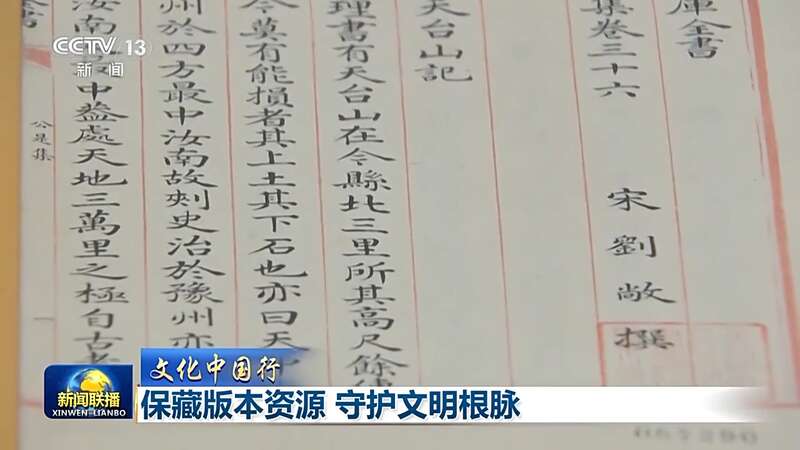 CCTV 13
新闻
庫全書
集卷三十六 宋劉敞撰
天台山記
理書有天台山在今縣北三里所其高尺餘
今莫有能損者其上土其下石也亦曰天
州於四方最中汝南故刺史治於豫州亦
汝南最中葢處天地三萬里之極自古
公是集
全書
新闻联播
XINWEN-LIANBO
文化中国行
保藏版本资源 守护文明根脉